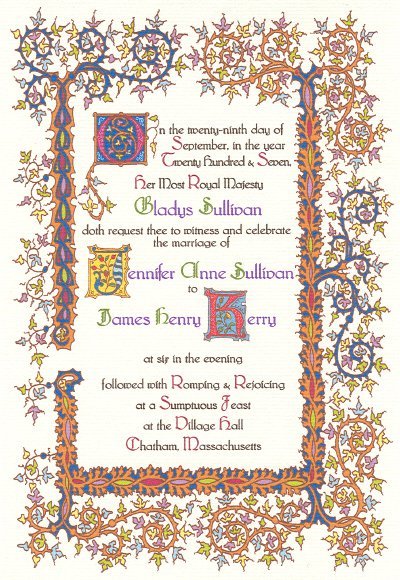 On the twenty-ninth day of
September, in the year
Twenty Hundred & Seven,
Her Most Royal Majesty
Gladys Sullivan
doth request thee to witness and celebrate
the marriage of
Jennifer Anne Sullivan
to
James Henry Kerry
at six in the evening
followed with Romping & Rejoicing
at a Sumptuous Feast
at the Village Hall
Chatham, Massachusetts